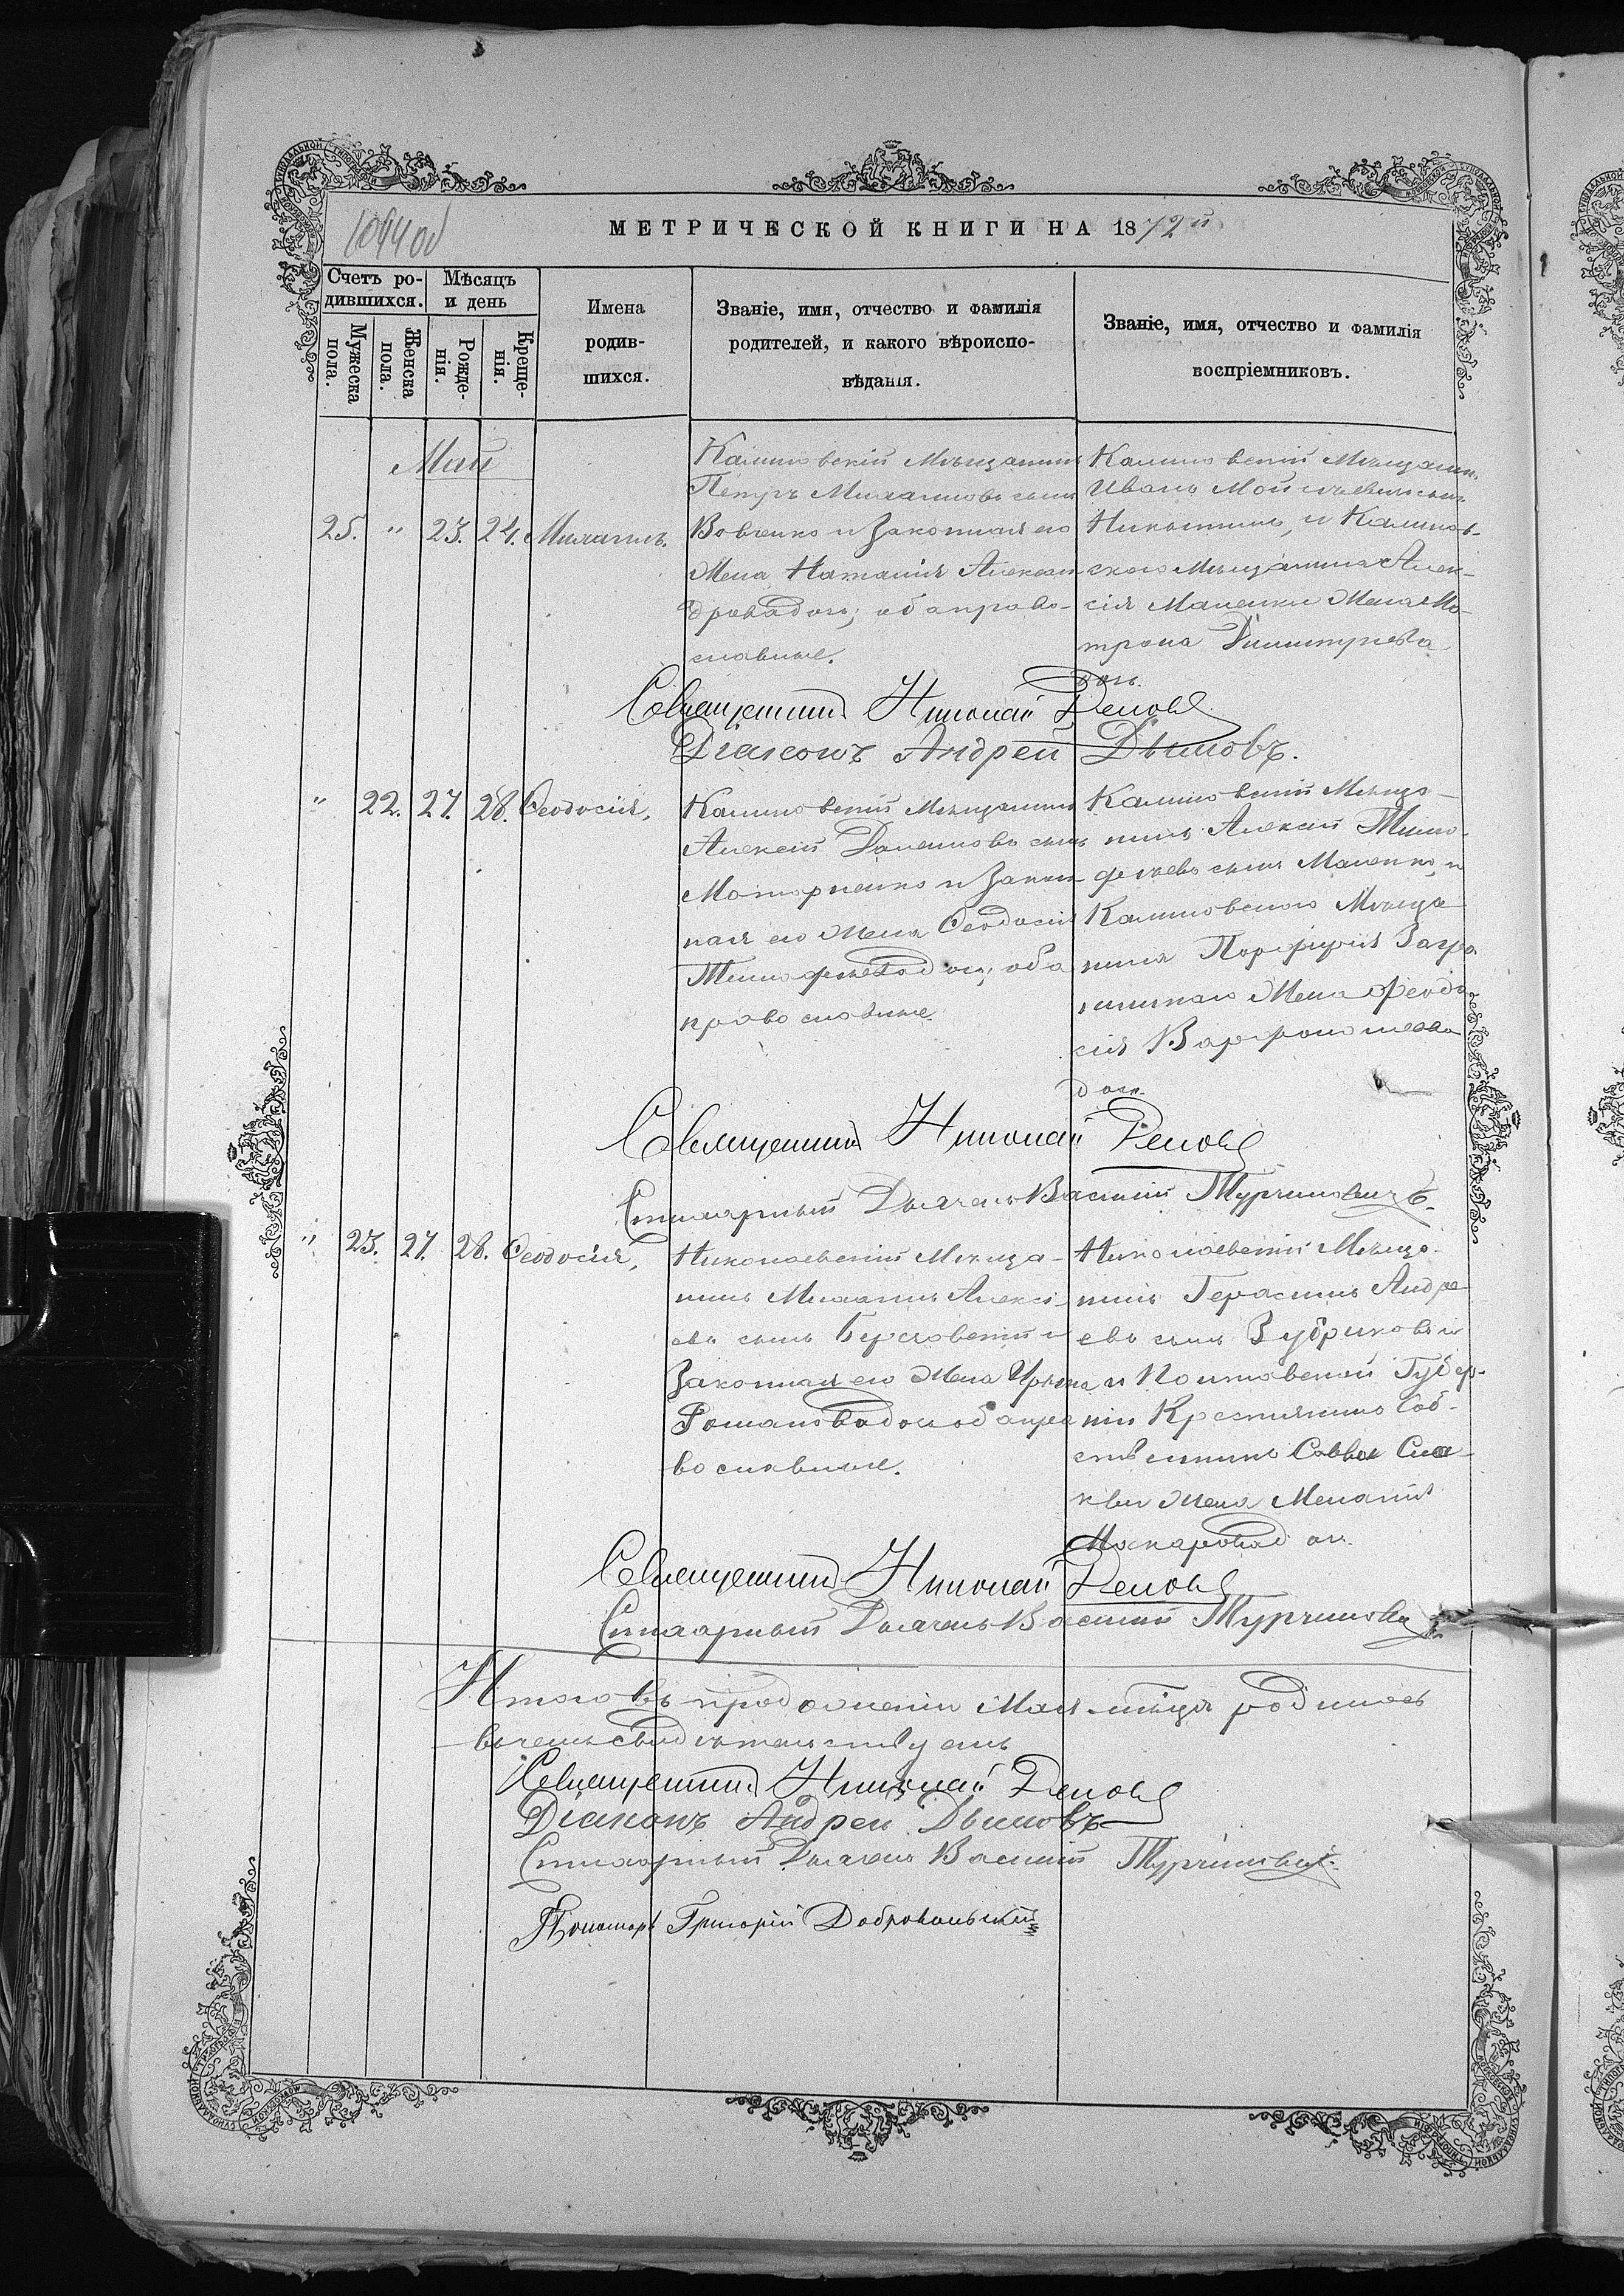 1044 об
МЕТРИЧЕСКОЙ КНИГИ НА 1872й
Счетъ ро-
дившихся.
Мѣсяцъ
и день
Имена
родив-
шихся.
Званіе, имя, отчество и фамилія
родителей, и какого вѣроиспо-
вѣданія.
Званіе, имя, отчество и фамилія
воспріемниковъ.
Мужеска
пола.
Женска
пола.
Рожде-
нія.
Креще-
нія.
Май
25. " 23. 24. Михаилъ.
Калиновскій Мѣщанинъ
Петръ Михаиловъ сынъ
Вовченко и законная его
Жена Наталія Алексан-
дрова дочь; оба право-
славные.
Калиновскій Мѣщанинъ
Иванъ Моисѣевъ сынъ
Никитинъ, и Калинов-
скаго Мѣщанина Алек-
сія Маценки Жена Мо-
трона Димитріева
дочь.
Священникъ Николай
Діаконъ Андрей Дымовъ.
" 22. 27. 28. Ѳеодосія,
Калиновскій Мѣщанинъ
Алексій сынъ
Моторненко и Закон-
ная его Жена Ѳеодосія
Тимофѣева дочь; оба
православные.
Калиновскій Мѣща-
нинъ Алексій Тимо-
фѣевъ сынъ Маценко, и
Калиновскаго Мѣща
нина Порфирія Загра
ничнаго Жена Феодо
сія Варфоломеева
дочь.
Священникъ Николай
Стихарный Дьячекъ Василій Турчиновичъ.
" 23. 27. 28. Ѳеодосія,
Николаевскій Мѣща-
нинъ Михаилъ Алексі-
евъ сынъ и
Законная его Жена Ирина
Романова дочь оба пра
вославные.
Николаевскій Мѣща-
нинъ Герасимъ Андре-
евъ сынъ Зубриковъ и
и Полтавской Губер-
ніи Крестьянина Соб-
ственника Саввы
Жена Меланія
Макарова дочь.
Священникъ Николай
Стихарный Дьячекъ Василій Турчиновичъ
Итого въ продолженіи Мая мѣсяца родилось
въ чемъ свидѣтельствуемъ
Священникъ Николай
Діаконъ Андрей Дымовъ
Стихарный Дьячекъ Василій Турчиновичъ.
Пономарь Григорій Добровольскій